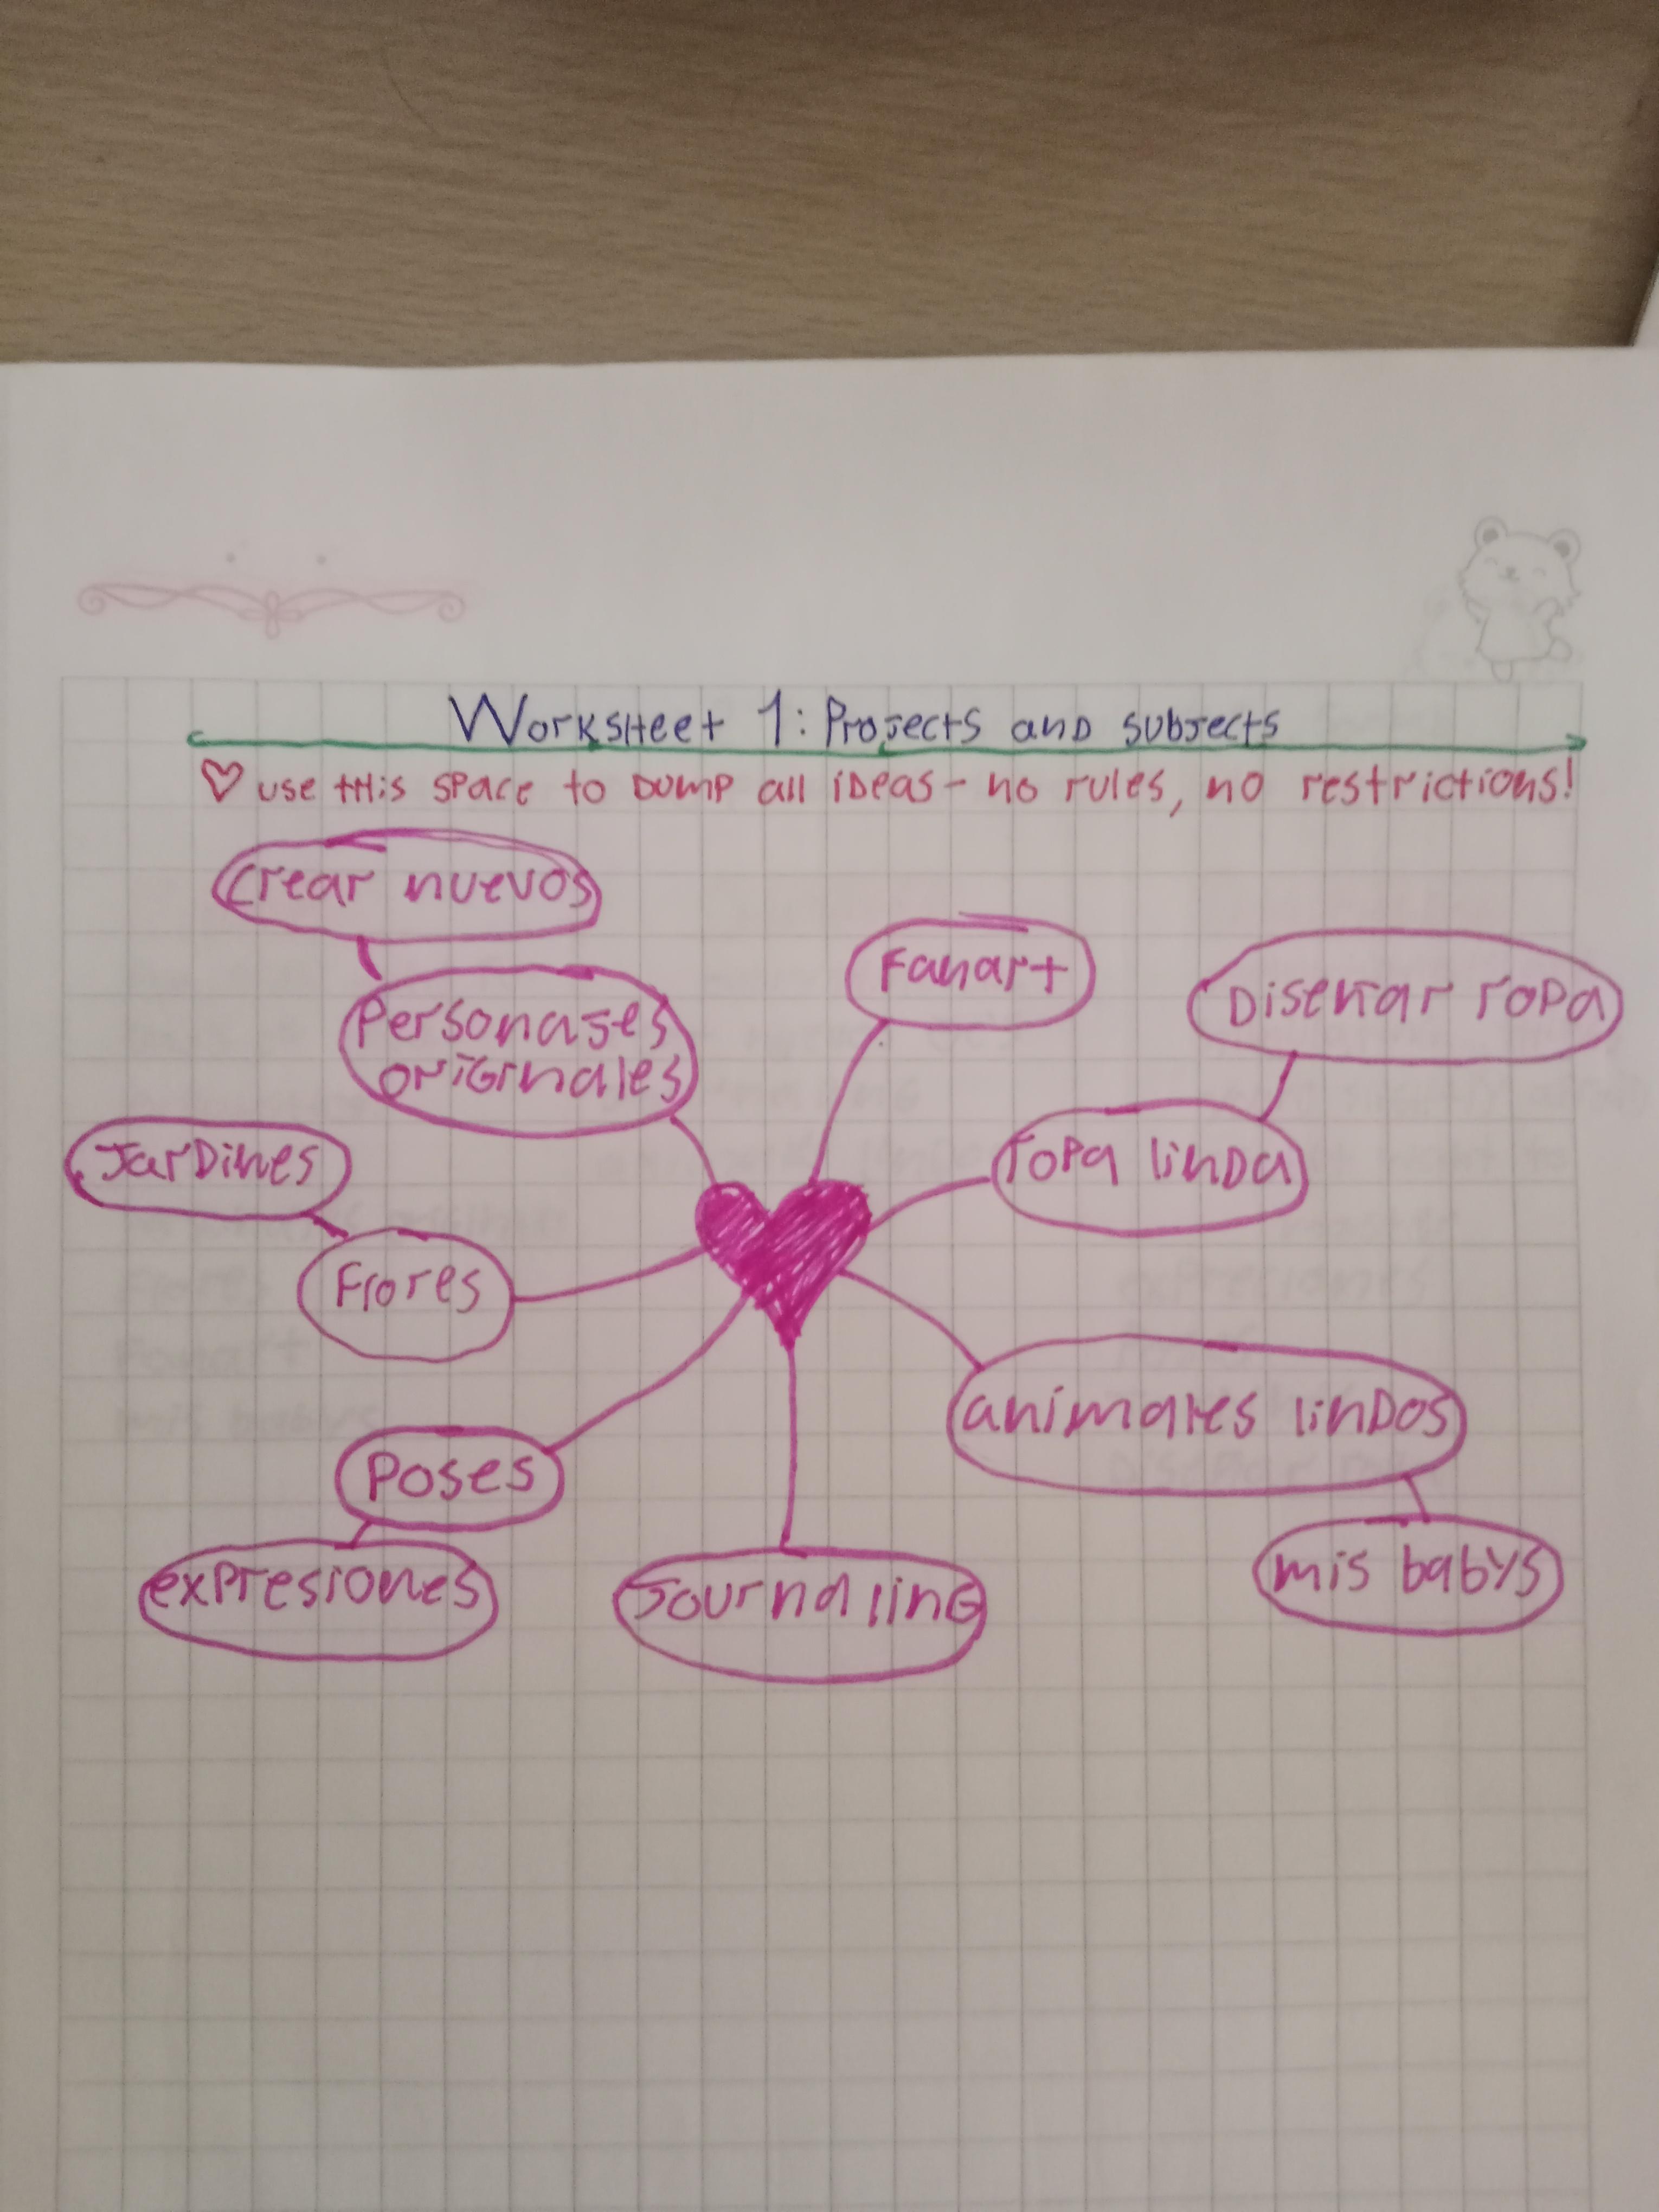 Worksheet 1: Projects and subjects
use this space to dump all ideas - no rules, no restrictions!
Crear nuevos
Fanart
Diseñar ropa
Personajes
originales
Jardines
ropa linda
Flores
animales lindos
Poses
expresiones
Journaling
mis babys